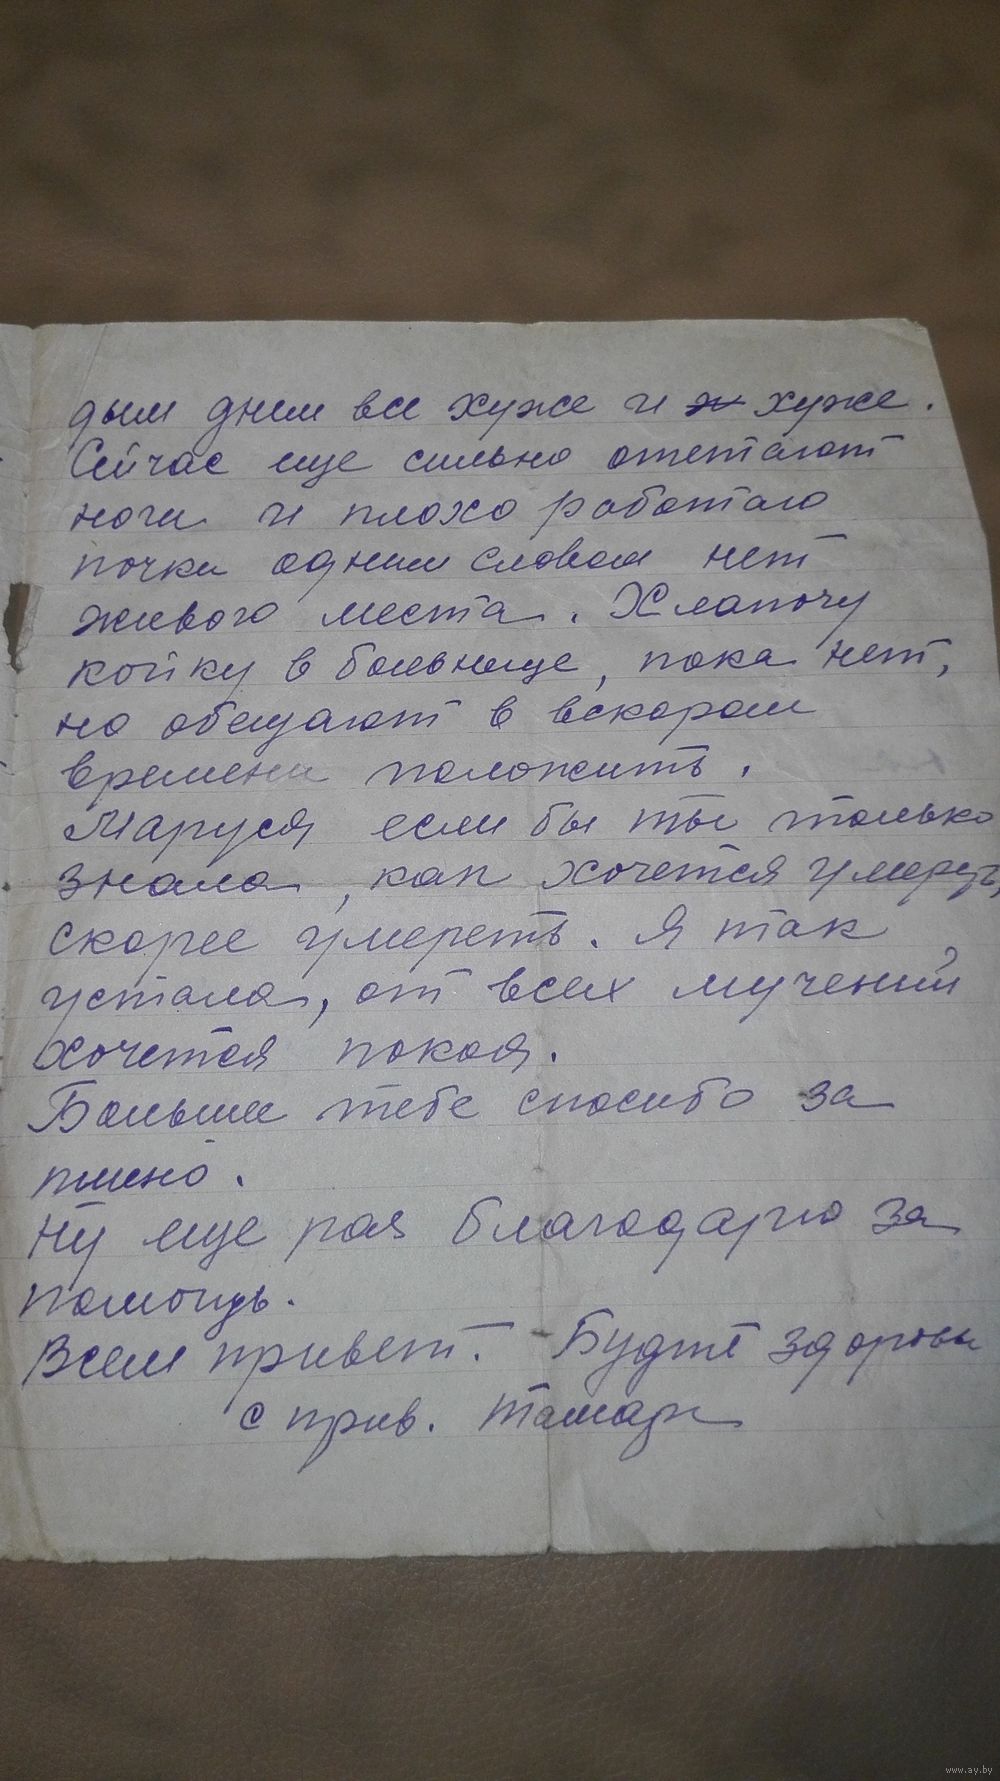 дым днем все хуже и ж хуже.
Сейчас еще сильно отетают
ноги и плохо работаю
почки одним словом нет
живого места. Хлапочу
койку в больнице, пока нет,
но обещают в вскором
времени положить.
Маруся если бы ты только
знала, как хочется умереть,
скорее умереть. Я так
устала, от всех мучений
хочется покоя.
Большее тебе спосибо за
пшено.
Ну еще раз благодарю за
помощь.
Всем привет. Будте здоровы
с прив. Тамара
www.ay.by